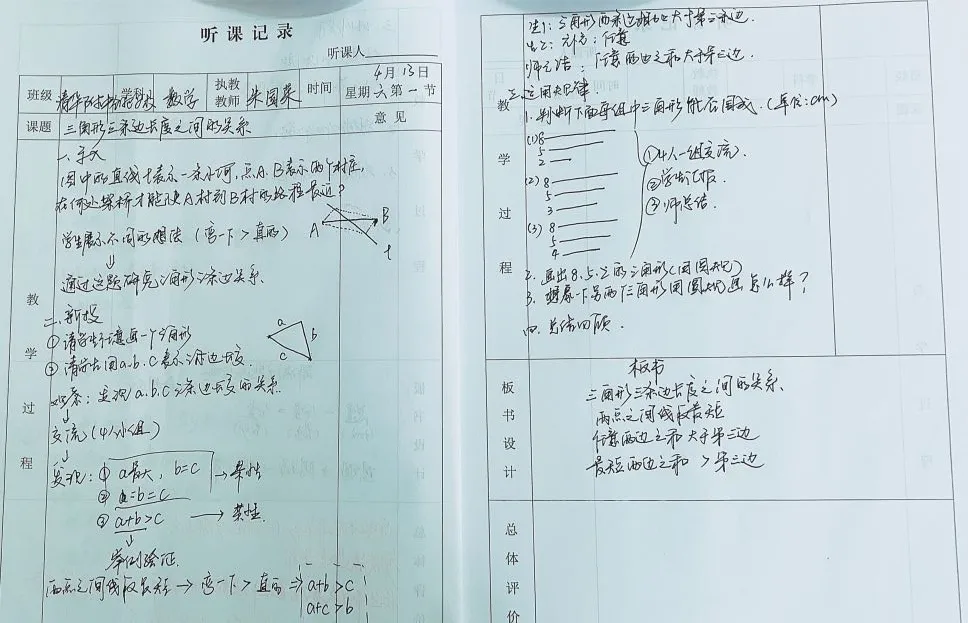 听课记录
听课人
班级 清华附 学科 数学 执教教师 朱国荣 时间 4月13日 星期六第一节
课题 三角形三条边长度之间的关系 意见
教学过程
一、导入
图中的直线l表示一条小河,点A.B表示两个村庄,
在何处架桥才能使A村到B村的路程最近?
A B l
学生展示不同的想法(弯一下>直的)
↓
通过这题研究三角形三条边关系.
二、新授
①请学生任意画一个三角形
②请学生用a.b.c表示三边长度.
a b c
观察:发现a.b.c三条边长度的关系
↓
交流(4人小组)
↓
发现:① a最大,b=c → 某性
② a=b=c
③ a+b>c → 某性.
↓
举例验证
两点之间线段最短 → 弯一下>直的 ⇒ a+b>c
a+c>b
教学过程
生1:三角形两条边相加大于第三边.
生2:补充:任意
师总结:任意两边之和大于第三边.
三、运用规律
1. 判断下面每组中三角形能否围成.(单位:cm)
(1) 8
5
2
(2) 8
5
3
(3) 8
5
4
①4人一组交流.
②学生汇报.
③师总结.
2. 画出8.5.4的三角形(用圆规)
3. 想象一下另两个三角形用圆规画怎么样?
四、总结回顾.
板书设计
板书
三角形三条边长度之间的关系
两点之间线段最短
任意两边之和大于第三边
最短两边之和 > 第三边
总体评价